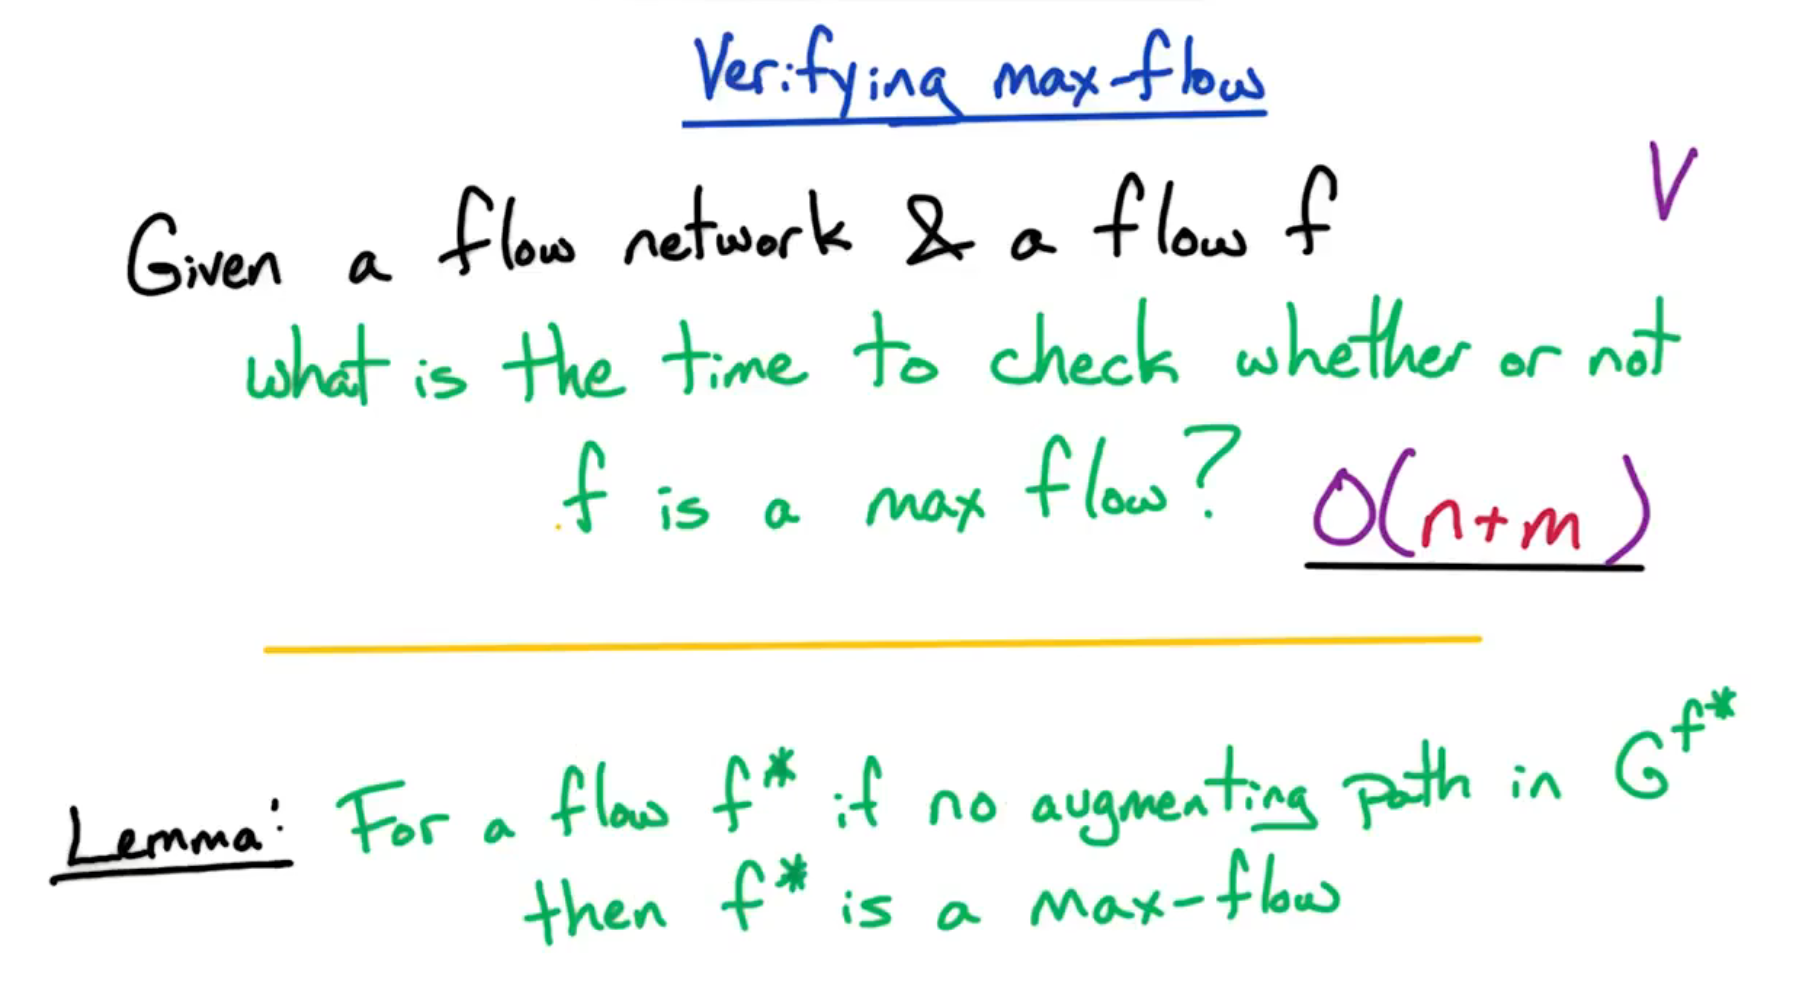 Verifying max-flow
V
Given a flow network & a flow f
what is the time to check whether or not
f is a max flow? O(n+m)
Lemma: For a flow f* if no augmenting path in G^f*
then f* is a max-flow